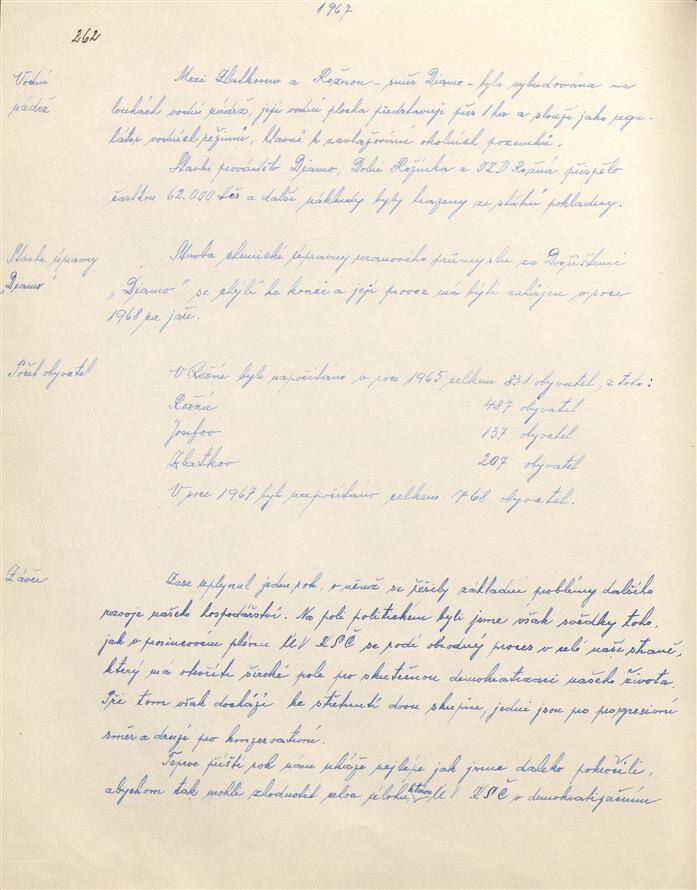 1967
262
Vodní
nádrž
Mezi Zlatkovem a Rožnou - směr Diamo - byla vybudována na
loukách vodní nádrž, její vodní plocha představuje přes 1 ha a slouží jako regu-
látor vodních režimů, hlavně k zavlažování okolních pozemků.
Stavbu provádělo Diamo, Dolní Rožínka a JZD Rožná přispělo
částkou 62.000 Kčs a další náklady byly hrazeny ze státní pokladny.
Stavba úpravny
„Diamo"
Stavba chemické úpravny uranového průmyslu za
„Diamo" se chýlí ke konci a její provoz má býti zahájen v roce
1968 na jaře.
Počet obyvatel
V Rožné bylo napočítáno v roce 1965 celkem 831 obyvatel, z toho:
Rožná 487 obyvatel
Josefov 137 obyvatel
Zlatkov 207 obyvatel
V roce 1967 bylo napočítáno celkem 768 obyvatel.
Závěr
Zase uplynul jeden rok, v němž se řešily základní problémy dalšího
rozvoje našeho hospodářství. Na poli politickém byli jsme však svědky toho,
jak v prosincovém plénu ÚV KSČ se rodí obrodný proces v celé naší straně,
který má otevříti široké pole pro skutečnou demokratizaci našeho života.
Při tom však dochází ke střetnutí dvou skupin, jedni jsou pro progresivní
směr a druzí pro konzervativní.
Teprve příští rok nám ukáže nejlépe jak jsme daleko pokročili,
abychom tak mohli zhodnotit celou úlohu kterou ÚV KSČ v demokratizačním